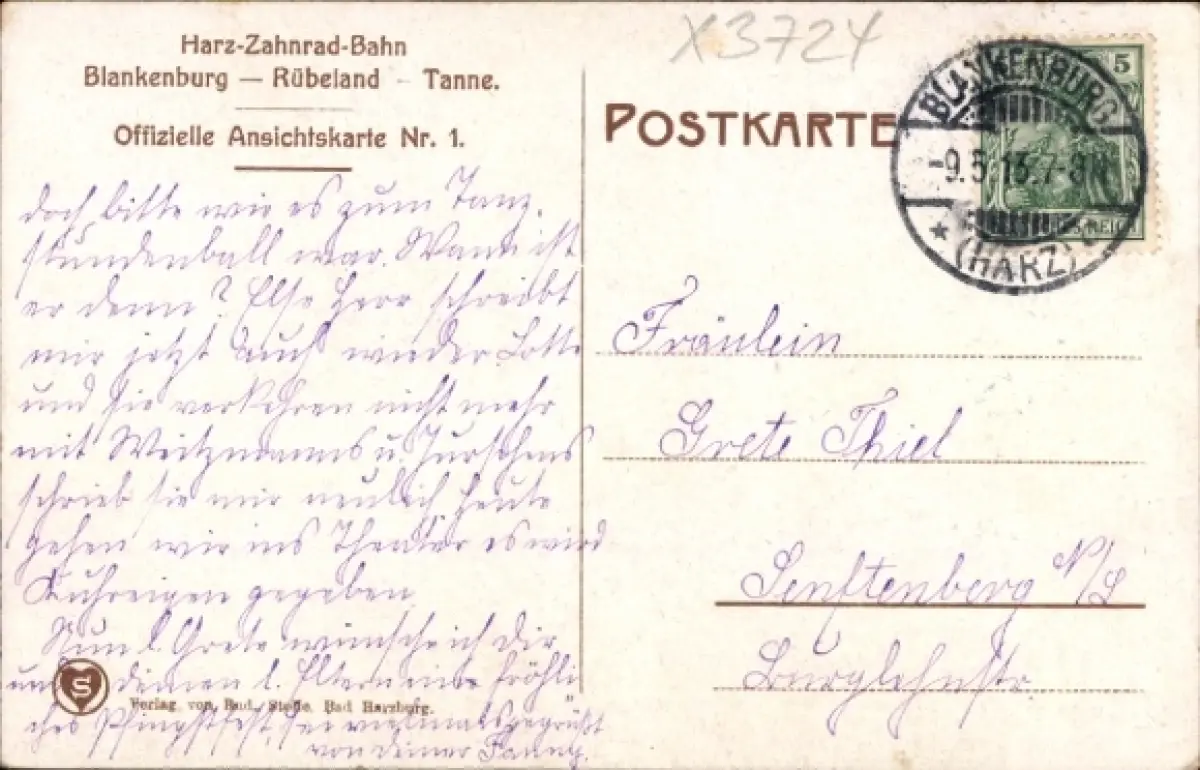 Harz-Zahnrad-Bahn
Blankenburg — Rübeland – Tanne.
Offizielle Ansichtskarte Nr. 1.
doch bitte wie es zum Tanz-
stundenball war. Wann ist
er denn? Else Herr schreibt
mir jetzt auch wieder Lotte
und sie verkehren nicht mehr
mit Weitzmanns u.
schrieb sie mir neulich heute
gehen wir ins Theater es wird
Kuhreigen gegeben
Nun l. Grete wünsche ich dir
und deinen l. Eltern eine fröhli
ches Pfingstfest, sei vielmals gegrüßt
von deiner Fanny.
S
Verlag von Rud. Stolle, Bad Harzburg.
X3724
POSTKARTE
BLANKENBURG
-9.5.13.7-8N
* (HARZ)
5
REICH
Fräulein
Grete Thiel
Senftenberg N/L
Burglehnstr